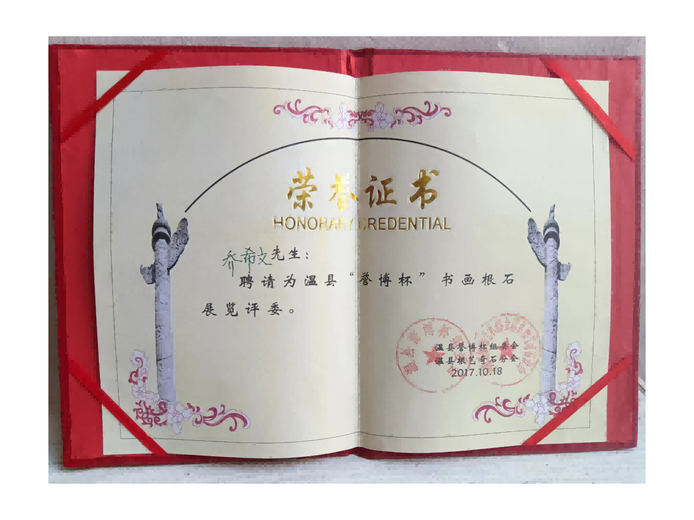 荣誉证书
HONORARY CREDENTIAL
乔希文先生：
聘请为温县“誉博杯”书画根石
展览评委。
温县誉博杯组委会
温县根艺奇石分会
2017.10.18